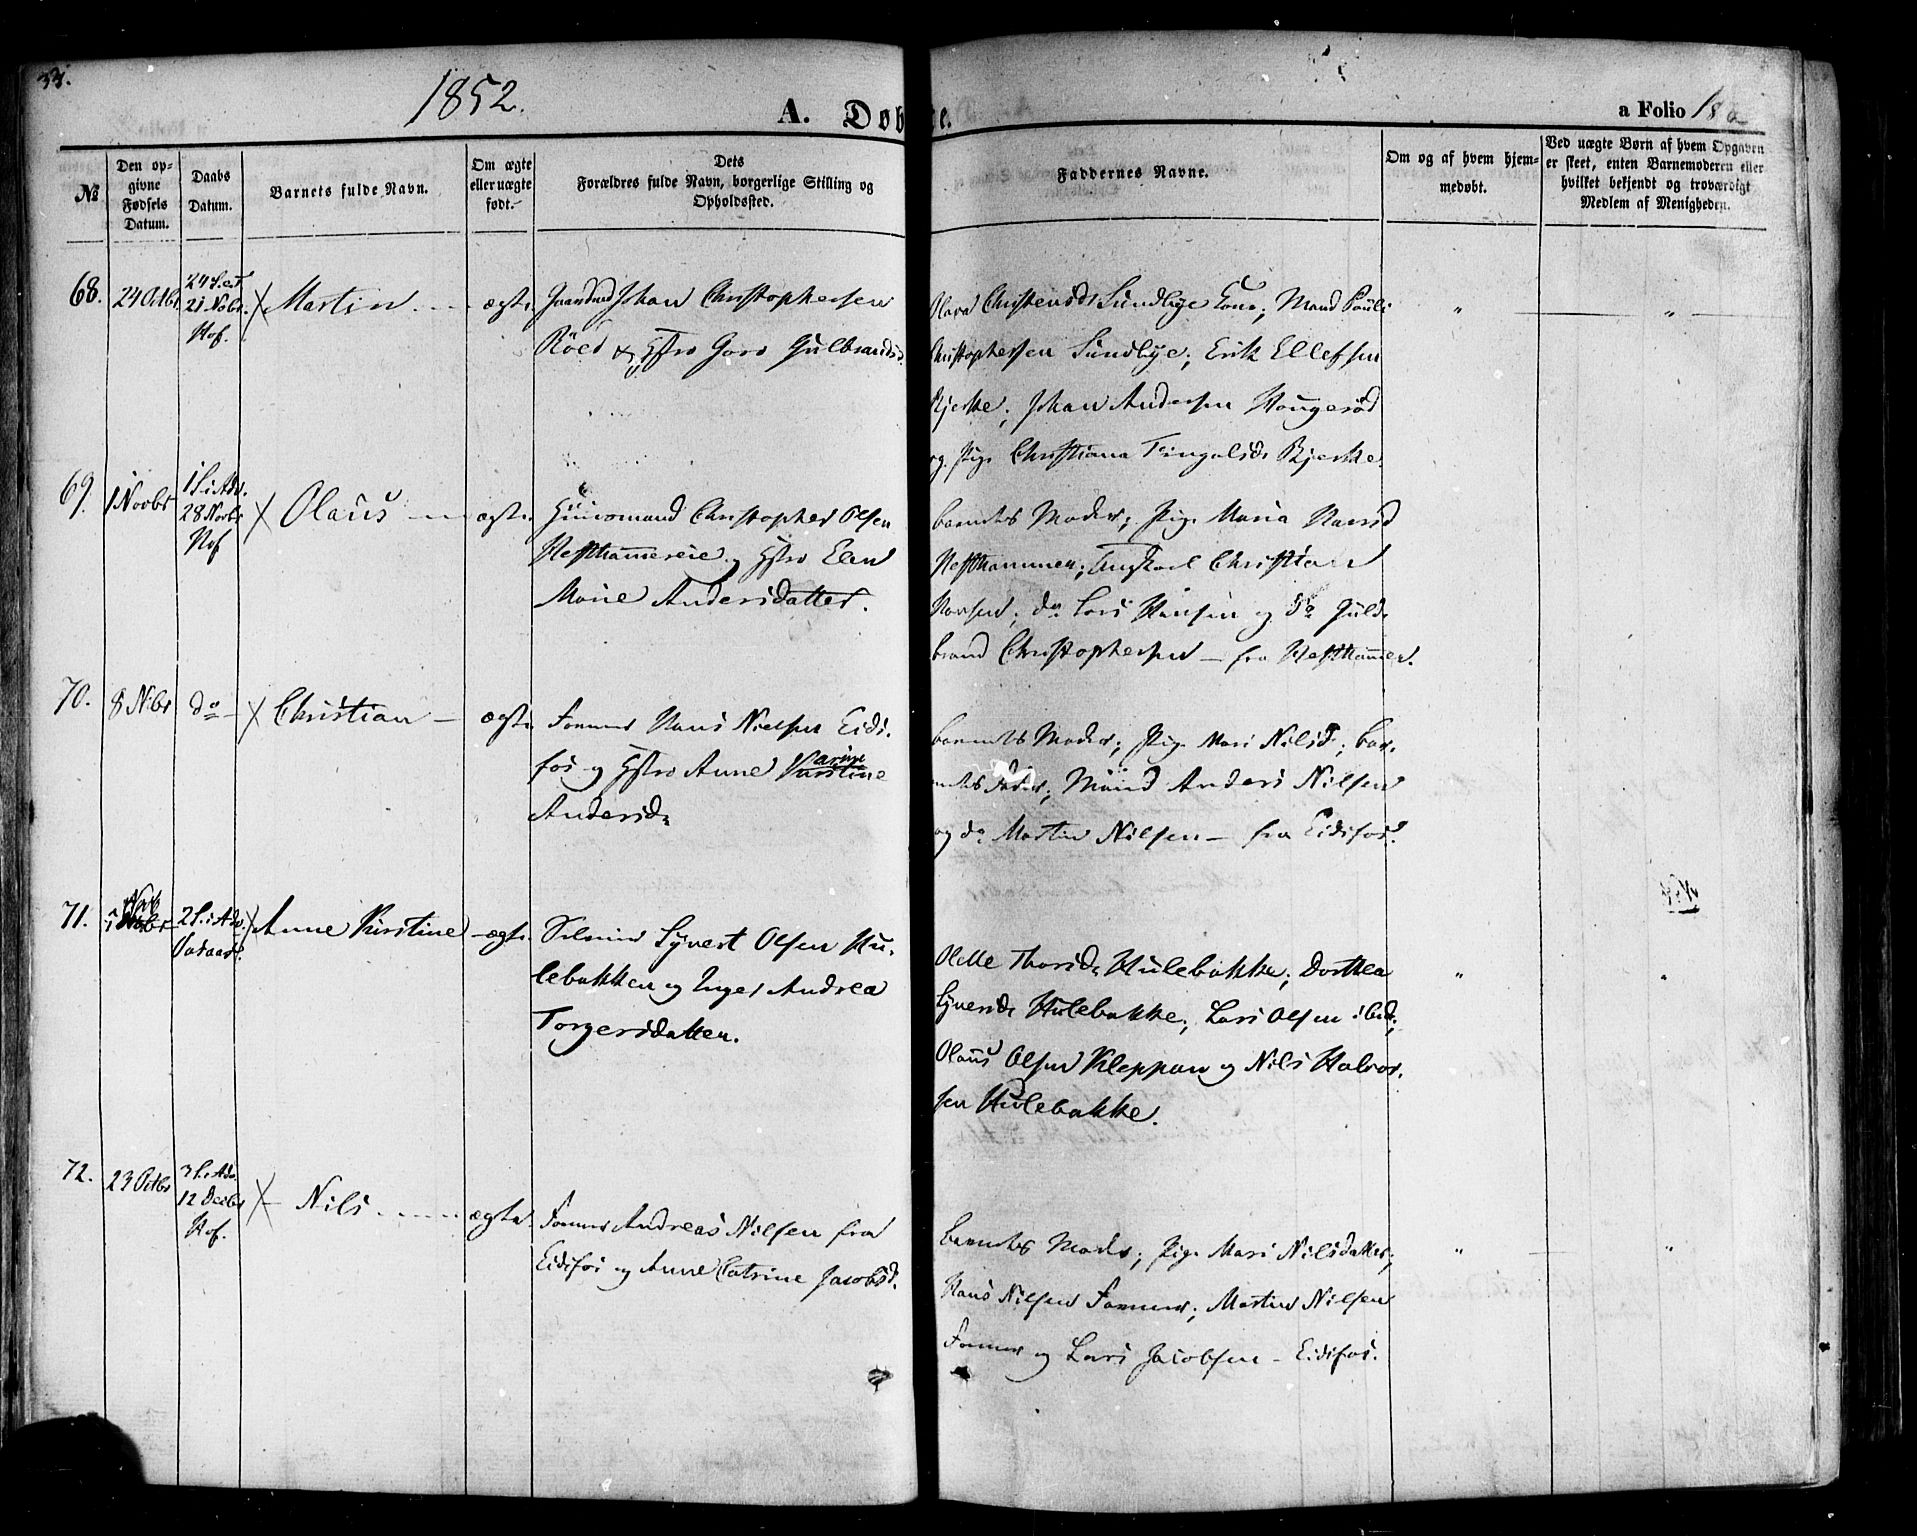 33.
1852.
A. Døb
e.
a Folio 18
№
Den op-
givne
Fødsels
Datum.
Daabs
Datum.
Barnets fulde Navn.
Om ægte
eller uægte
født.
Dets
Forældres fulde Navn, borgerlige Stilling og
Opholdssted.
Faddernes Navne.
Om og af hvem hjem-
medøbt.
Ved uægte Børn af hvem Opgaven
er skeet, enten Barnemoderen eller
hvilket bekjendt og troværdigt
Medlem af Menigheden.
68.
24 Octbr
21 Nobr.
Hof.
Martin
ægte
Johan Christophersen
Röed og Hstro Goro Gulbrandsd.
Olava Christensd. Sundbye Kone; Mand Pauli
Christophersen Sundbye; Erik Ellefsen
Bjerke; Johan Andersen Hougeröd
og Pige Christiana Bjerke.
69.
1 Novbr
1 S. i Adv.
28 Novbr
Hof
Olaus
ægte
Huusmand Christopher Olsen
Hesthammereie og Hstro Elen
Marie Andersdatter.
barnets Moder; Pige Maria Hansd
Hesthammer; Ungkarl Christian
Hansen; do Lars Hansen og do Guld-
brand Christophersen - fra Hesthammer.
70.
8 Nvbr
do
Christian
ægte
Former Hans Nielsen Eids-
fos og Hstro Anne Kirstine
arine
Andersd.
barnets Moder; Pige Mari Nilsd.; bar-
nets Fader; Mand Anders Nilsen
og do Martin Nilsen - fra Eidsfos.
71.
Nob
2 S. i Adv.
Anne Kirstine
ægte
Syvert Olsen Hu-
lebakken og Inger Andrea
Torgersdatter.
Olette Thorsd. Hulebakke; Dorthea
Syversd. Hulebakke; Lars Olsen ibid;
Olaus Olsen Kleppan og Nils Halvor-
sen Hulebakke.
72.
23 Octbr
3 S. i Adv.
12 Decbr
Hof.
Nils
ægte
Former Andreas Nilsen fra
Eidsfos og Anne Catrine Jacobsd.
barnets Moder; Pige Mari Nilsdatter;
Hans Nilsen Former; Martin Nilsen
Former og Lars Jacobsen - Eidsfos.